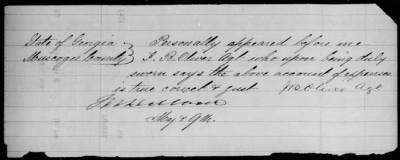 State of Georgia } Personally appeared before me
Muscogee County } J. R. Oliver Agt. who upon being duly
sworn says the above account of expenses
is true correct & just J R Oliver Agt